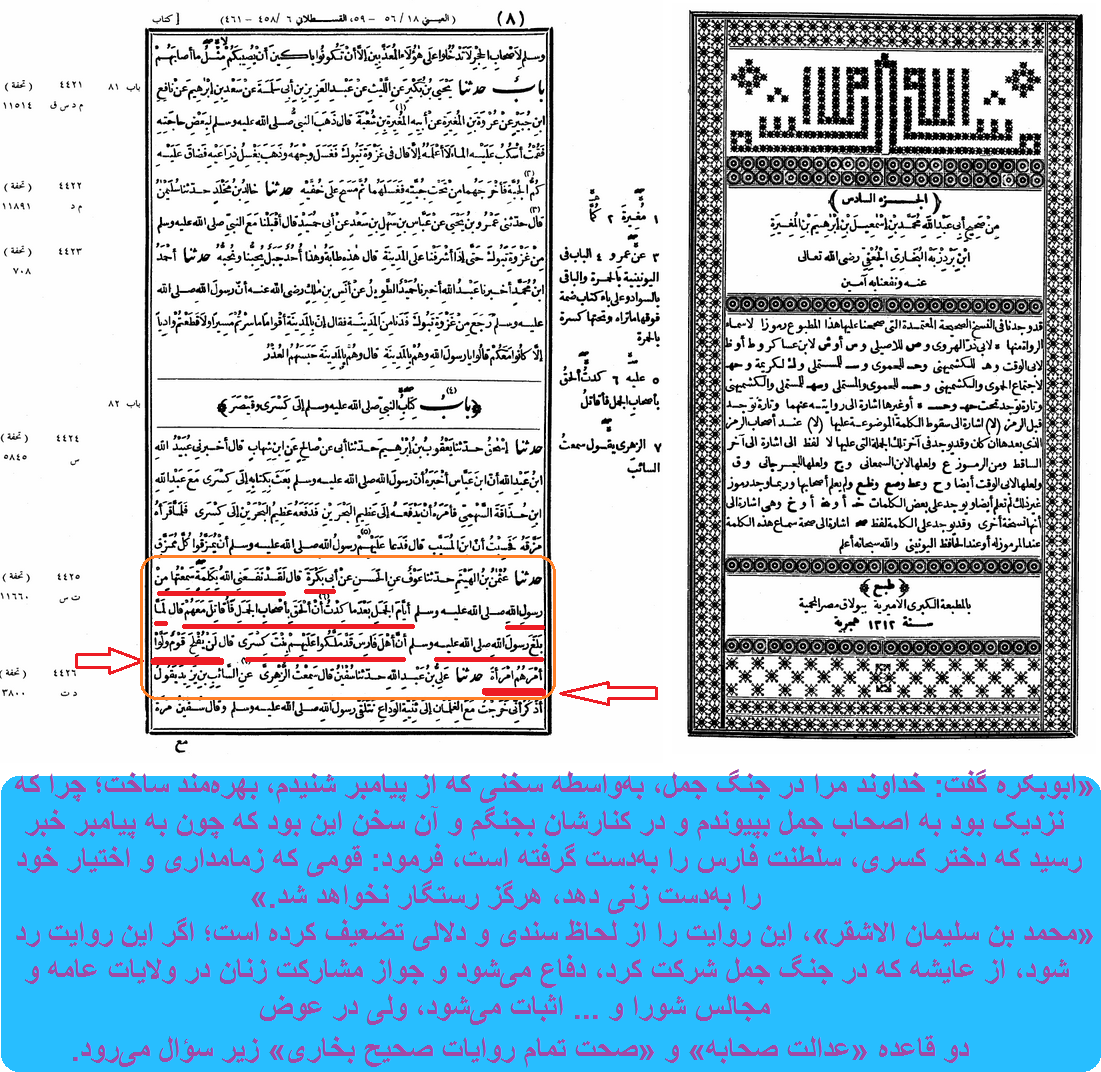 بسم الله الرحمن الرحيم
﴿ الجزء السادس ﴾
من صحيح أبى عبد الله محمد بن إسمعيل بن إبراهيم بن المغيرة
ابن بردزبه البخارى الجعفى رضى الله تعالى
عنه ونفعنا به آمين
قد وجدنا فى النسخ الصحيحة المعتمدة التى صححنا عليها هذا المطبوع رموزا لاسماء
الرواة منها ه لابى ذر الهروى و ص للاصيلى و س أوش لابن عساكر و ط أوظ
لابى الوقت و هـ للكشميهنى و حـ للحموى و سـ للمستملى و ك لكريمة و حهـ
لاجتماع الحموى والكشميهنى و حسـ للحموى والمستملى و سهـ للمستملى والكشميهنى
وتارة توجد تحت حهـ و حسـ ه أوغيرها اشارة الى روايته عنهما وتارة توجد
قبل الرمز (لا) اشارة الى سقوط الكلمة الموضوعة عليها (لا) عند أصحاب الرمز
الذى بعدها ان كان وقد يوجد فى آخر تلك الجملة التى عليها لا لفظ الى اشارة الى آخر
الساقط ومن الرموز ع ولعلها لابن السمعانى و ج ولعلها للجرجانى و ق
ولعلها لابى الوقت أيضا و ح وعط وصع وظع ولم يعلم أصحابها وربما وجد رموز
غير ذلك لم تعلم أيضا ويوجد على بعض الكلمات خـ أو خه أو خ وهى اشارة الى
أنها نسخة أخرى وقد يوجد على الكلمة لفظ صح اشارة الى صحة سماع هذه الكلمة
عند المرموز له أو عند الحافظ اليونينى والله سبحانه أعلم
﴿ طبع ﴾
بالمطبعة الكبرى الاميرية ببولاق مصر المحمية
سنة ١٣١٢ هجرية
(٨) (العينى ١٨/ ٥٦ – ٥٩، القسطلانى ٦/ ٤٥٨ - ٤٦١) [ كتاب
وسلم لاصحاب الحجر لا تدخلوا على هؤلاء المعذبين إلا أن تكونوا باكين أن يصيبكم مثل ما أصابهم
باب حدثنا يحيى بن بكير عن الليث عن عبد العزيز بن أبى سلمة عن سعد بن إبراهيم عن نافع
ابن جبير عن عروة بن المغيرة عن أبيه المغيرة بن شعبة قال ذهب النبى صلى الله عليه وسلم لبعض حاجته
فقمت أسكب عليه الماء لا أعلمه إلا قال فى غزوة تبوك فغسل وجهه وذهب يغسل ذراعيه فضاق عليه
كم الجبة فأخرجهما من تحت جبته فغسلهما ثم مسح على خفيه حدثنا خالد بن مخلد حدثنا سليمن
قال حدثنى عمرو بن يحيى عن عباس بن سهل بن سعد عن أبى حميد قال أقبلنا مع النبى صلى الله عليه وسلم
من غزوة تبوك حتى إذا أشرفنا على المدينة قال هذه طابة وهذا أحد جبل يحبنا ونحبه حدثنا أحمد
ابن محمد أخبرنا عبد الله أخبرنا حميد الطويل عن أنس بن ملك رضى الله عنه أن رسول الله صلى الله
عليه وسلم رجع من غزوة تبوك فدنا من المدينة فقال إن بالمدينة أقواما ما سرتم مسيرا ولا قطعتم واديا
إلا كانوا معكم قالوا يا رسول الله وهم بالمدينة قال وهم بالمدينة حبسهم العذر
﴿ باب كتاب النبى صلى الله عليه وسلم إلى كسرى وقيصر ﴾
حدثنا إسحق حدثنا يعقوب بن إبراهيم حدثنا أبى عن صالح عن ابن شهاب قال أخبرنى عبيد الله
ابن عبد الله أن ابن عباس أخبره أن رسول الله صلى الله عليه وسلم بعث بكتابه إلى كسرى مع عبد الله
ابن حذافة السهمى فأمره أن يدفعه إلى عظيم البحرين فدفعه عظيم البحرين إلى كسرى فلما قرأه
مزقه فحسبت أن ابن المسيب قال فدعا عليهم رسول الله صلى الله عليه وسلم أن يمزقوا كل ممزق
حدثنا عثمن بن الهيثم حدثنا عوف عن الحسن عن أبى بكرة قال لقد نفعنى الله بكلمة سمعتها من
رسول الله صلى الله عليه وسلم أيام الجمل بعد ما كدت أن ألحق بأصحاب الجمل فأقاتل معهم قال لما
بلغ رسول الله صلى الله عليه وسلم أن أهل فارس قد ملكوا عليهم بنت كسرى قال لن يفلح قوم ولوا
أمرهم امرأة حدثنا على بن عبد الله حدثنا سفين قال سمعت الزهرى عن السائب بن يزيد يقول
أذكر أنى خرجت مع الغلمان إلى ثنية الوداع نتلقى رسول الله صلى الله عليه وسلم وقال سفين مرة
مع
١ مغيرة ٢ كما
٣ عن عمرو ٤ الباب فى
اليونينية بالحمرة والباقى
بالسواد وعلى باء كتاب ضمة
فوقها ماتراه وتحتها كسرة
بالحمرة
٥ عليه ٦ كدت ألحق
بأصحاب الجمل فأقاتل
٧ الزهرى يقول سمعت
السائب
باب ٨١ ٤٤٢١ (تحفة)
م د س ق ١١٥١٤
٤٤٢٢ (تحفة)
م د ١١٨٩١
٤٤٢٣ (تحفة)
٧٠٨
باب ٨٢
٤٤٢٤ (تحفة)
س ٥٨٤٥
٤٤٢٥ (تحفة)
ت س ١١٦٦٠
٤٤٢٦ (تحفة)
د ت ٣٨٠٠
«ابوبکره گفت: خداوند مرا در جنگ جمل، به‌واسطه سخنی که از پیامبر شنیدم، بهره‌مند ساخت؛ چرا که
نزدیک بود به اصحاب جمل بپیوندم و در کنارشان بجنگم و آن سخن این بود که چون به پیامبر خبر
رسید که دختر کسری، سلطنت فارس را به‌دست گرفته است، فرمود: قومی که زمامداری و اختیار خود
را به‌دست زنی دهد، هرگز رستگار نخواهد شد.»
«محمد بن سلیمان الاشقر»، این روایت را از لحاظ سندی و دلالی تضعیف کرده است؛ اگر این روایت رد
شود، از عایشه که در جنگ جمل شرکت کرد، دفاع می‌شود و جواز مشارکت زنان در ولایات عامه و
مجالس شورا و ... اثبات می‌شود، ولی در عوض
دو قاعده «عدالت صحابه» و «صحت تمام روایات صحیح بخاری» زیر سؤال می‌رود.